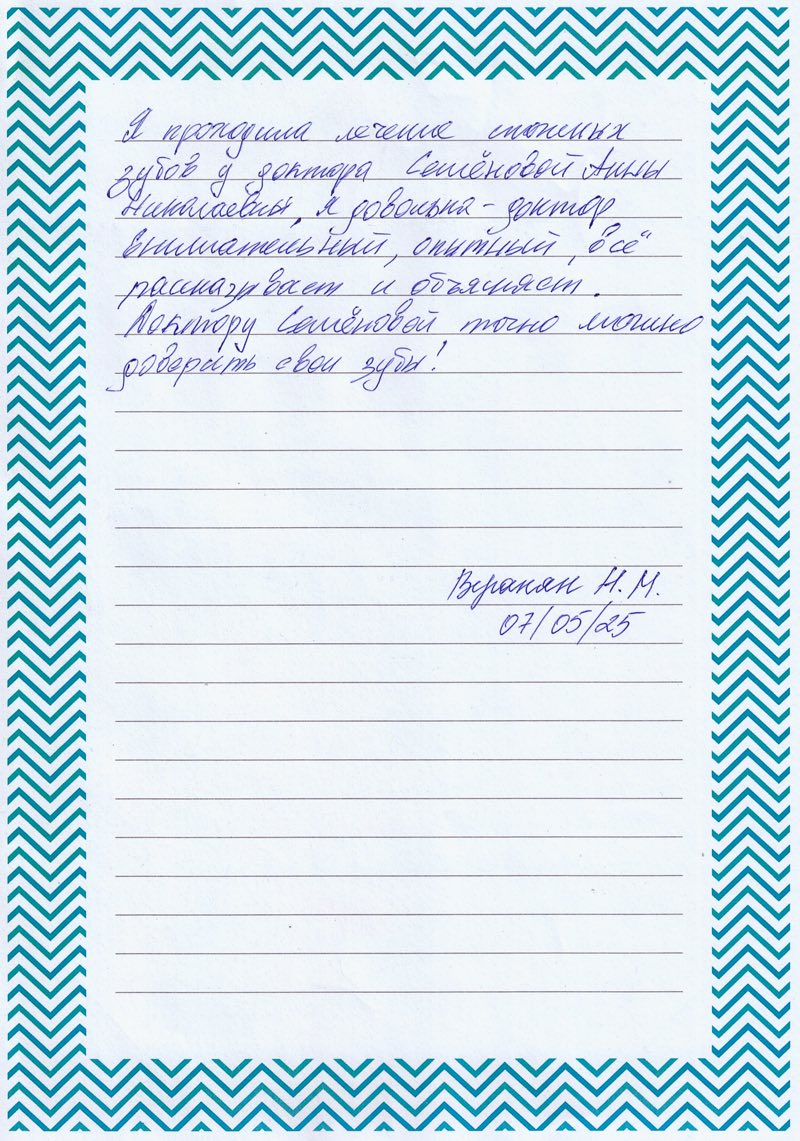 Я проходила лечение сложных
зубов у доктора Семёновой Анны
Николаевны, я довольна - доктор
внимательный, опытный, всё
рассказывает и объясняет.
Доктору Семёновой точно можно
доверить свои зубы!
Н. М.
07/05/25